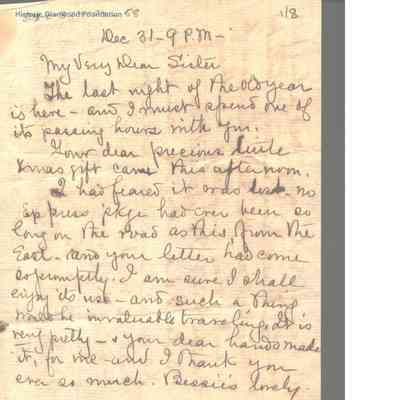 Historic Glenwood Foundation 58
1/8
Dec 31 - 9 P.M -
My Very Dear Sister
The last night of the old year
is here - and I must spend one of
its passing hours with you.
Your dear precious little
Xmas gift came this afternoon.
I had feared it was lost. no
express pkge had ever been so
long on the road as this from the
East - and your letter had come
so promptly. I am sure I shall
enjoy its use - and such a thing
will be invaluable traveling. It is
very pretty - & your dear hands made
it, for me - and I thank you
ever so much. Bessie's lovely